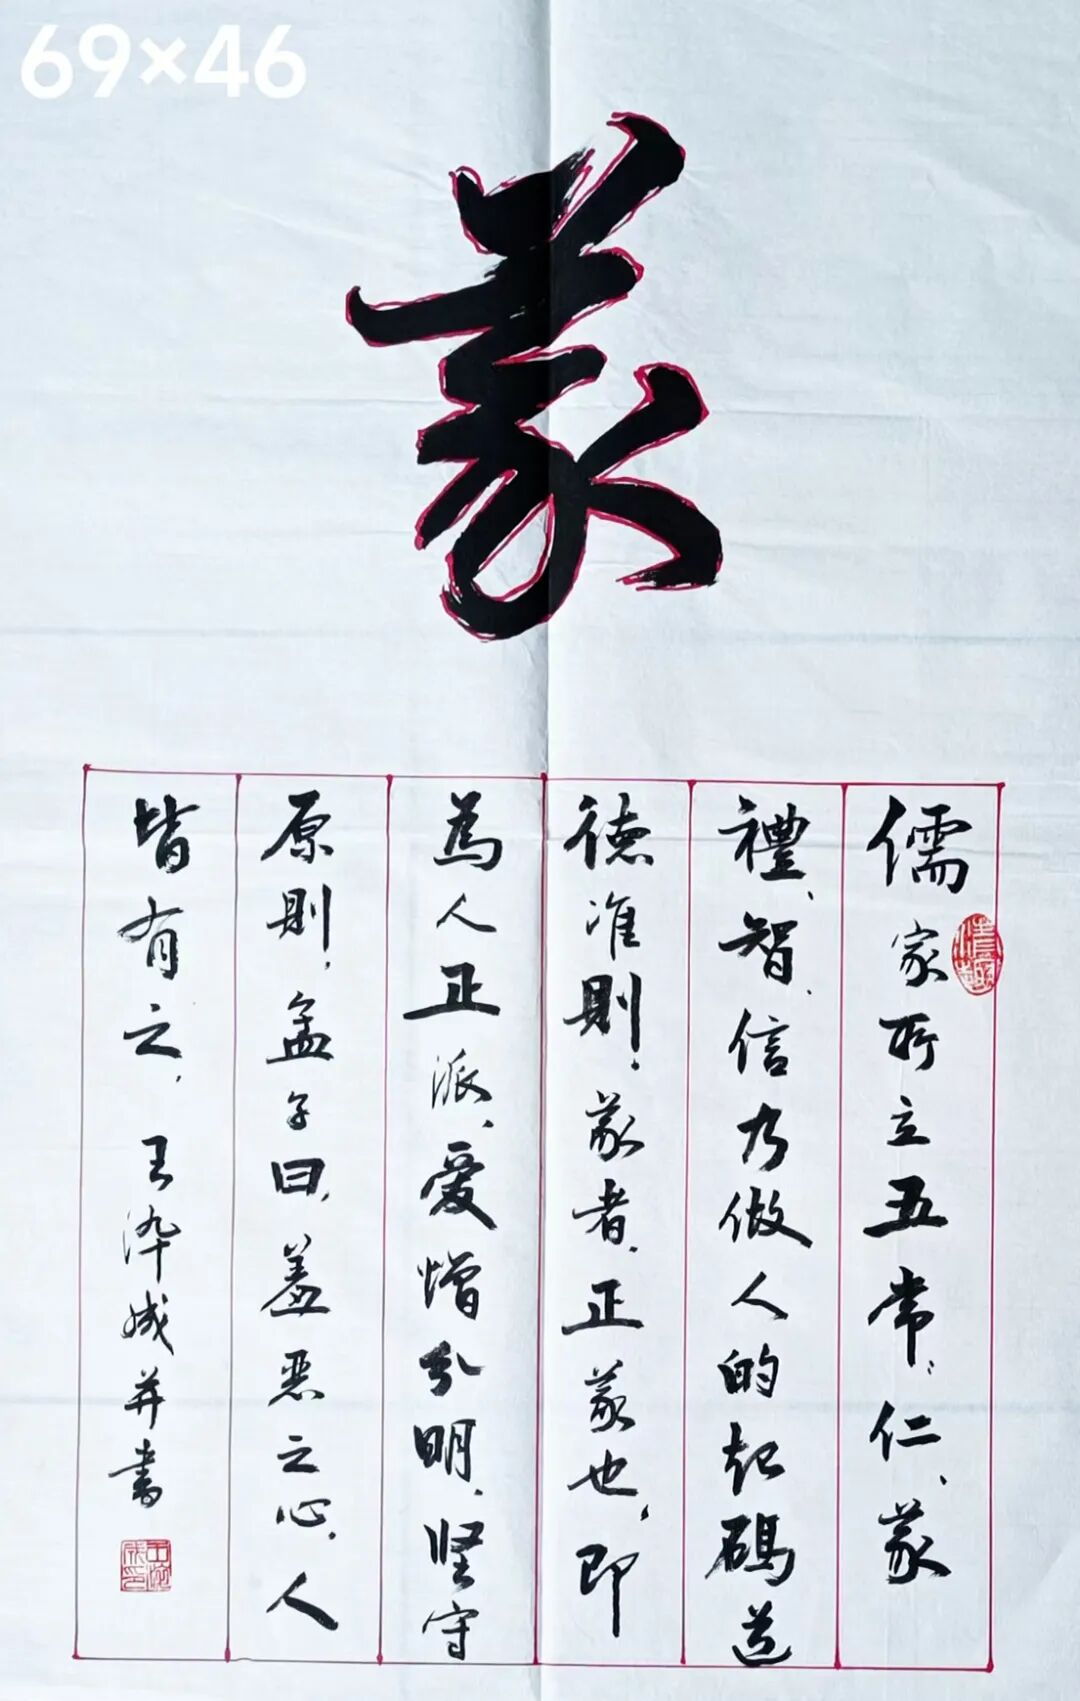 69×46
義
儒家所立五常：仁、義
禮、智、信乃做人的起碼道
德准則。義者，正義也，即
為人正派、愛憎分明、坚守
原則，孟子曰，羞惡之心，人
皆有之，王淬成并書